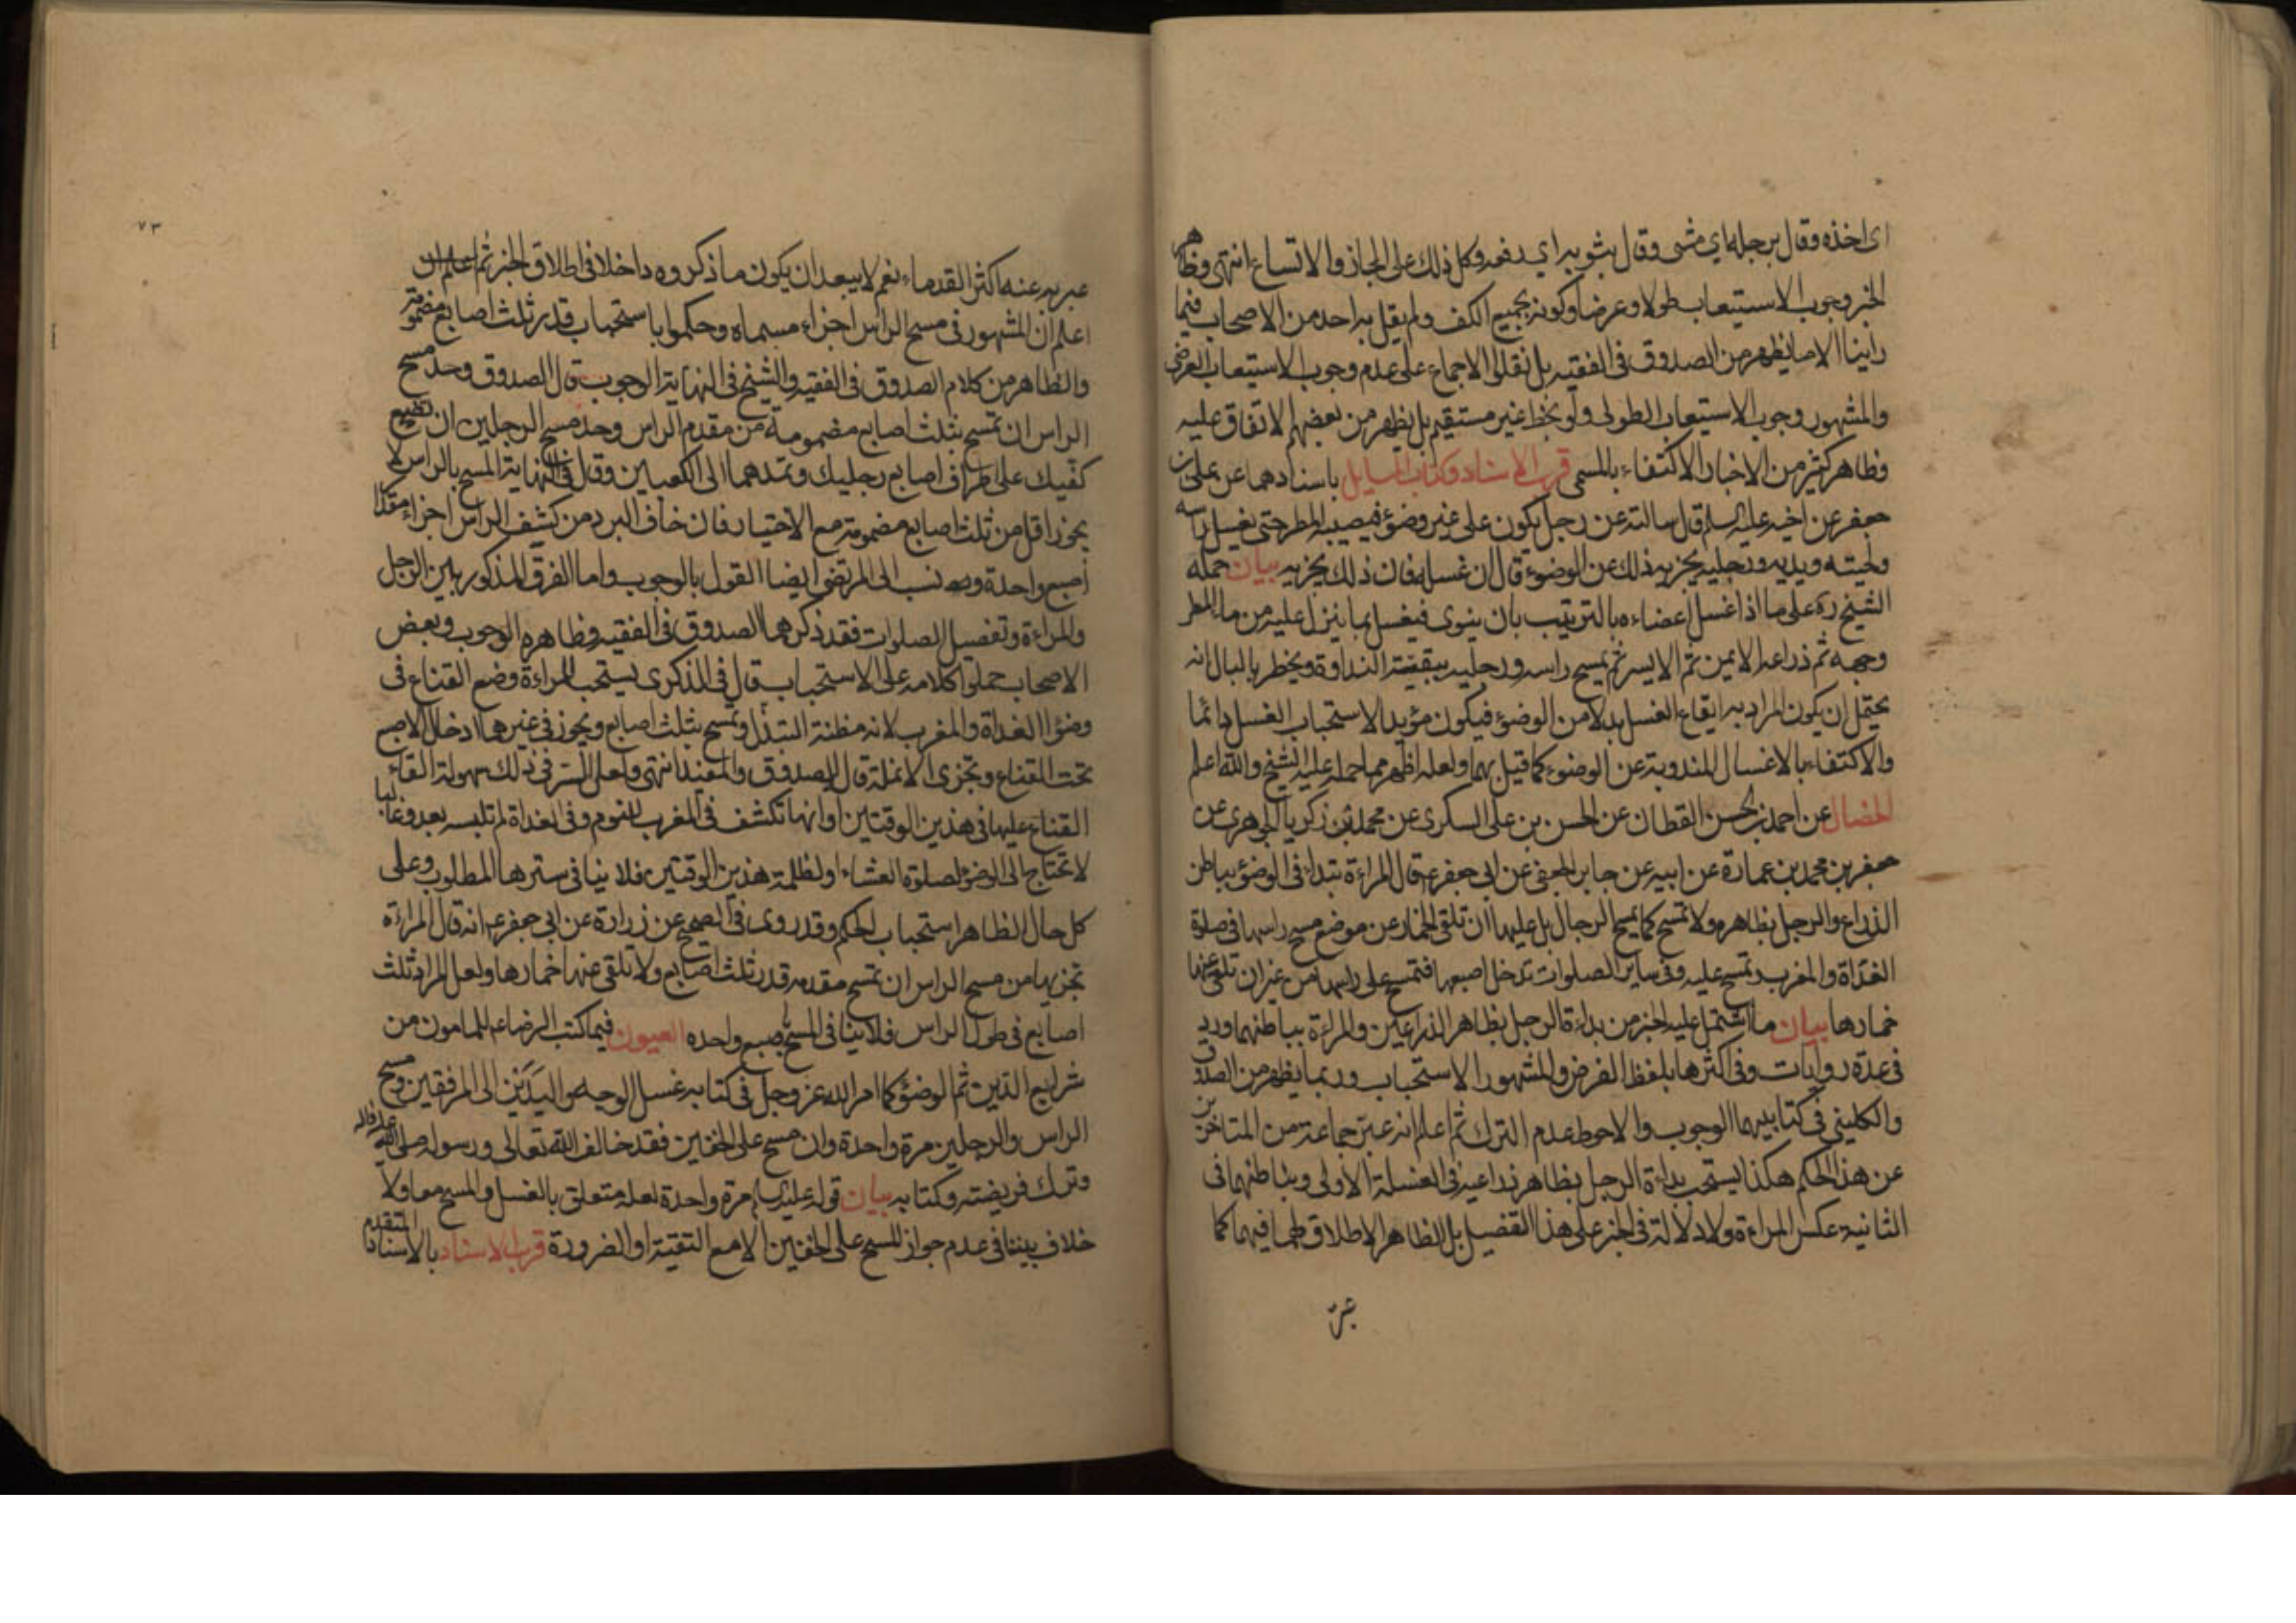 اى اخذه وقال برجله اي مشى وقال بثوبه اي رفعه وكل ذلك على المجاز والاتساع انتهى وظاهر
الخبر وجوب الاستيعاب طولا وعرضا وكونه بجميع الكف ولم يقل به احد من الاصحاب فيما
راينا الا ما يظهر من الصدوق فى الفقيه بل نقلوا الاجماع على عدم وجوب الاستيعاب العرضى
والمشهور وجوب الاستيعاب الطولى ولو بخط غير مستقيم بل يظهر من بعضهم الاتفاق عليه
وظاهر كثير من الاخبار الاكتفاء بالمسمى قرب الاسناد وكتاب المسايل باسنادهما عن على بن
جعفر عن اخيه عليه السلم قال سالته عن رجل يكون على غير وضوء فيصيبه المطر حتى يغسل راسه
ولحيته ويديه ورجليه يجزيه ذلك عن الوضوء قال ان غسله فان ذلك يجزيه بيان حمله
الشيخ ره على ما اذا غسل اعضاءه بالترتيب بان ينوى فيغسل بما ينزل عليه من ماء المطر
وجهه ثم ذراعه الايمن ثم الايسر ثم يمسح راسه ورجليه ببقية النداوة ويخطر بالبال انه
يحتمل ان يكون المراد به ايقاع الغسل بدلا من الوضوء فيكون مؤيدا لاستحباب الغسل دائما
والاكتفاء بالاغسال المندوبة عن الوضوء كما قيل بهما ولعله اظهر مما حمله عليه الشيخ والله اعلم
الخصال عن احمد بن الحسن القطان عن الحسن بن على السكرى عن محمد بن زكريا الجوهرى عن
جعفر بن محمد بن عمارة عن ابيه عن جابر الجعفى عن ابى جعفر ع قال المراءة تبداء فى الوضوء بباطن
الذراع والرجل بظاهره ولا تمسح كما يمسح الرجال بل عليها ان تلقى الخمار عن موضع مسح راسها فى صلوة
الغداة والمغرب وتمسح عليه وفى ساير الصلوات تدخل اصبعها فتمسح على راسها من غير ان تلقى عنها
خمارها بيان ما اشتمل عليه الخبر من بداءة الرجل بظاهر الذراعين والمراءة بباطنهما ورد
فى عدة روايات وفى اكثرها بلفظ الفرض والمشهور الاستحباب وربما يظهر من الصدوق
والكلينى فى كتابيهما الوجوب والاحوط عدم الترك ثم اعلم انه عبر جماعة من المتاخرين
عن هذا الحكم هكذا يستحب بداءة الرجل بظاهر ذراعيه فى الغسلة الاولى وبباطنهما فى
الثانية عكس المراءة ولا دلالة فى الخبر على هذا التفصيل بل الظاهر الاطلاق فيهما كما
عبر
٧٣
عبر به عنه اكثر القدماء نعم لا يبعد ان يكون ما ذكروه داخلا فى اطلاق الخبر ثم اعلم ان
اعلم ان المشهور فى مسح الراس اجزاء مسماه وحكموا باستحباب قدر ثلث اصابع مضمومة
والظاهر من كلام الصدوق فى الفقيه والشيخ فى النهاية الوجوب قال الصدوق وحد مسح
الراس ان تمسح بثلث اصابع مضمومة من مقدم الراس وحد مسح الرجلين ان تضع
كفيك على اطراف اصابع رجليك وتمدهما الى الكعبين وقال فى النهاية المسح بالراس لا
يجوز اقل من ثلث اصابع مضمومة مع الاختيار فان خاف البرد من كشف الراس اجزاء مقدار
اصبع واحدة ونسب الى المرتضى ايضا القول بالوجوب واما الفرق المذكور بين الرجل
والمراءة وتفصيل الصلوات فقد ذكرهما الصدوق فى الفقيه وظاهره الوجوب وبعض
الاصحاب حملوا كلامه على الاستحباب قال فى الذكرى يستحب للمراءة وضع القناع فى
وضوء الغداة والمغرب لانه مظنة التبذل وتمسح بثلث اصابع ويجوز فى غيرهما ادخال الاصبع
تحت القناع وتجزى الانملة قال الصدوق والمفيد انتهى ولعل السر فى ذلك سهولة القاء
القناع عليها فى هذين الوقتين او انها تكشف فى المغرب للنوم وفى الغداة لم تلبسه بعد وغالبا
لا تحتاج الى الوضوء لصلوة العشاء او لظلمة هذين الوقتين فلا ينافى سترها المطلوب وعلى
كل حال الظاهر استحباب الحكم وقد روى فى الصحيح عن زرارة عن ابى جعفر ع انه قال المراءة
تجزيها من مسح الراس ان تمسح مقدمه قدر ثلث اصابع ولا تلقى عنها خمارها ولعل المراد ثلث
اصابع فى طول الراس فلا ينافى المسح باصبع واحده العيون فيما كتب الرضا ع للمامون من
شرايع الدين ثم الوضوء كما امر الله عز وجل فى كتابه غسل الوجه واليدين الى المرفقين ومسح
الراس والرجلين مرة واحدة وان مسح على الخفين فقد خالف الله تعالى ورسوله صلى الله عليه واله
وترك فريضته وكتابه بيان قوله عليه السلم مرة واحدة لعله متعلق بالغسل والمسح معا ولا
خلاف بيننا فى عدم جواز المسح على الخفين الا مع التقية او الضرورة قرب الاسناد بالاسناد المتقدم